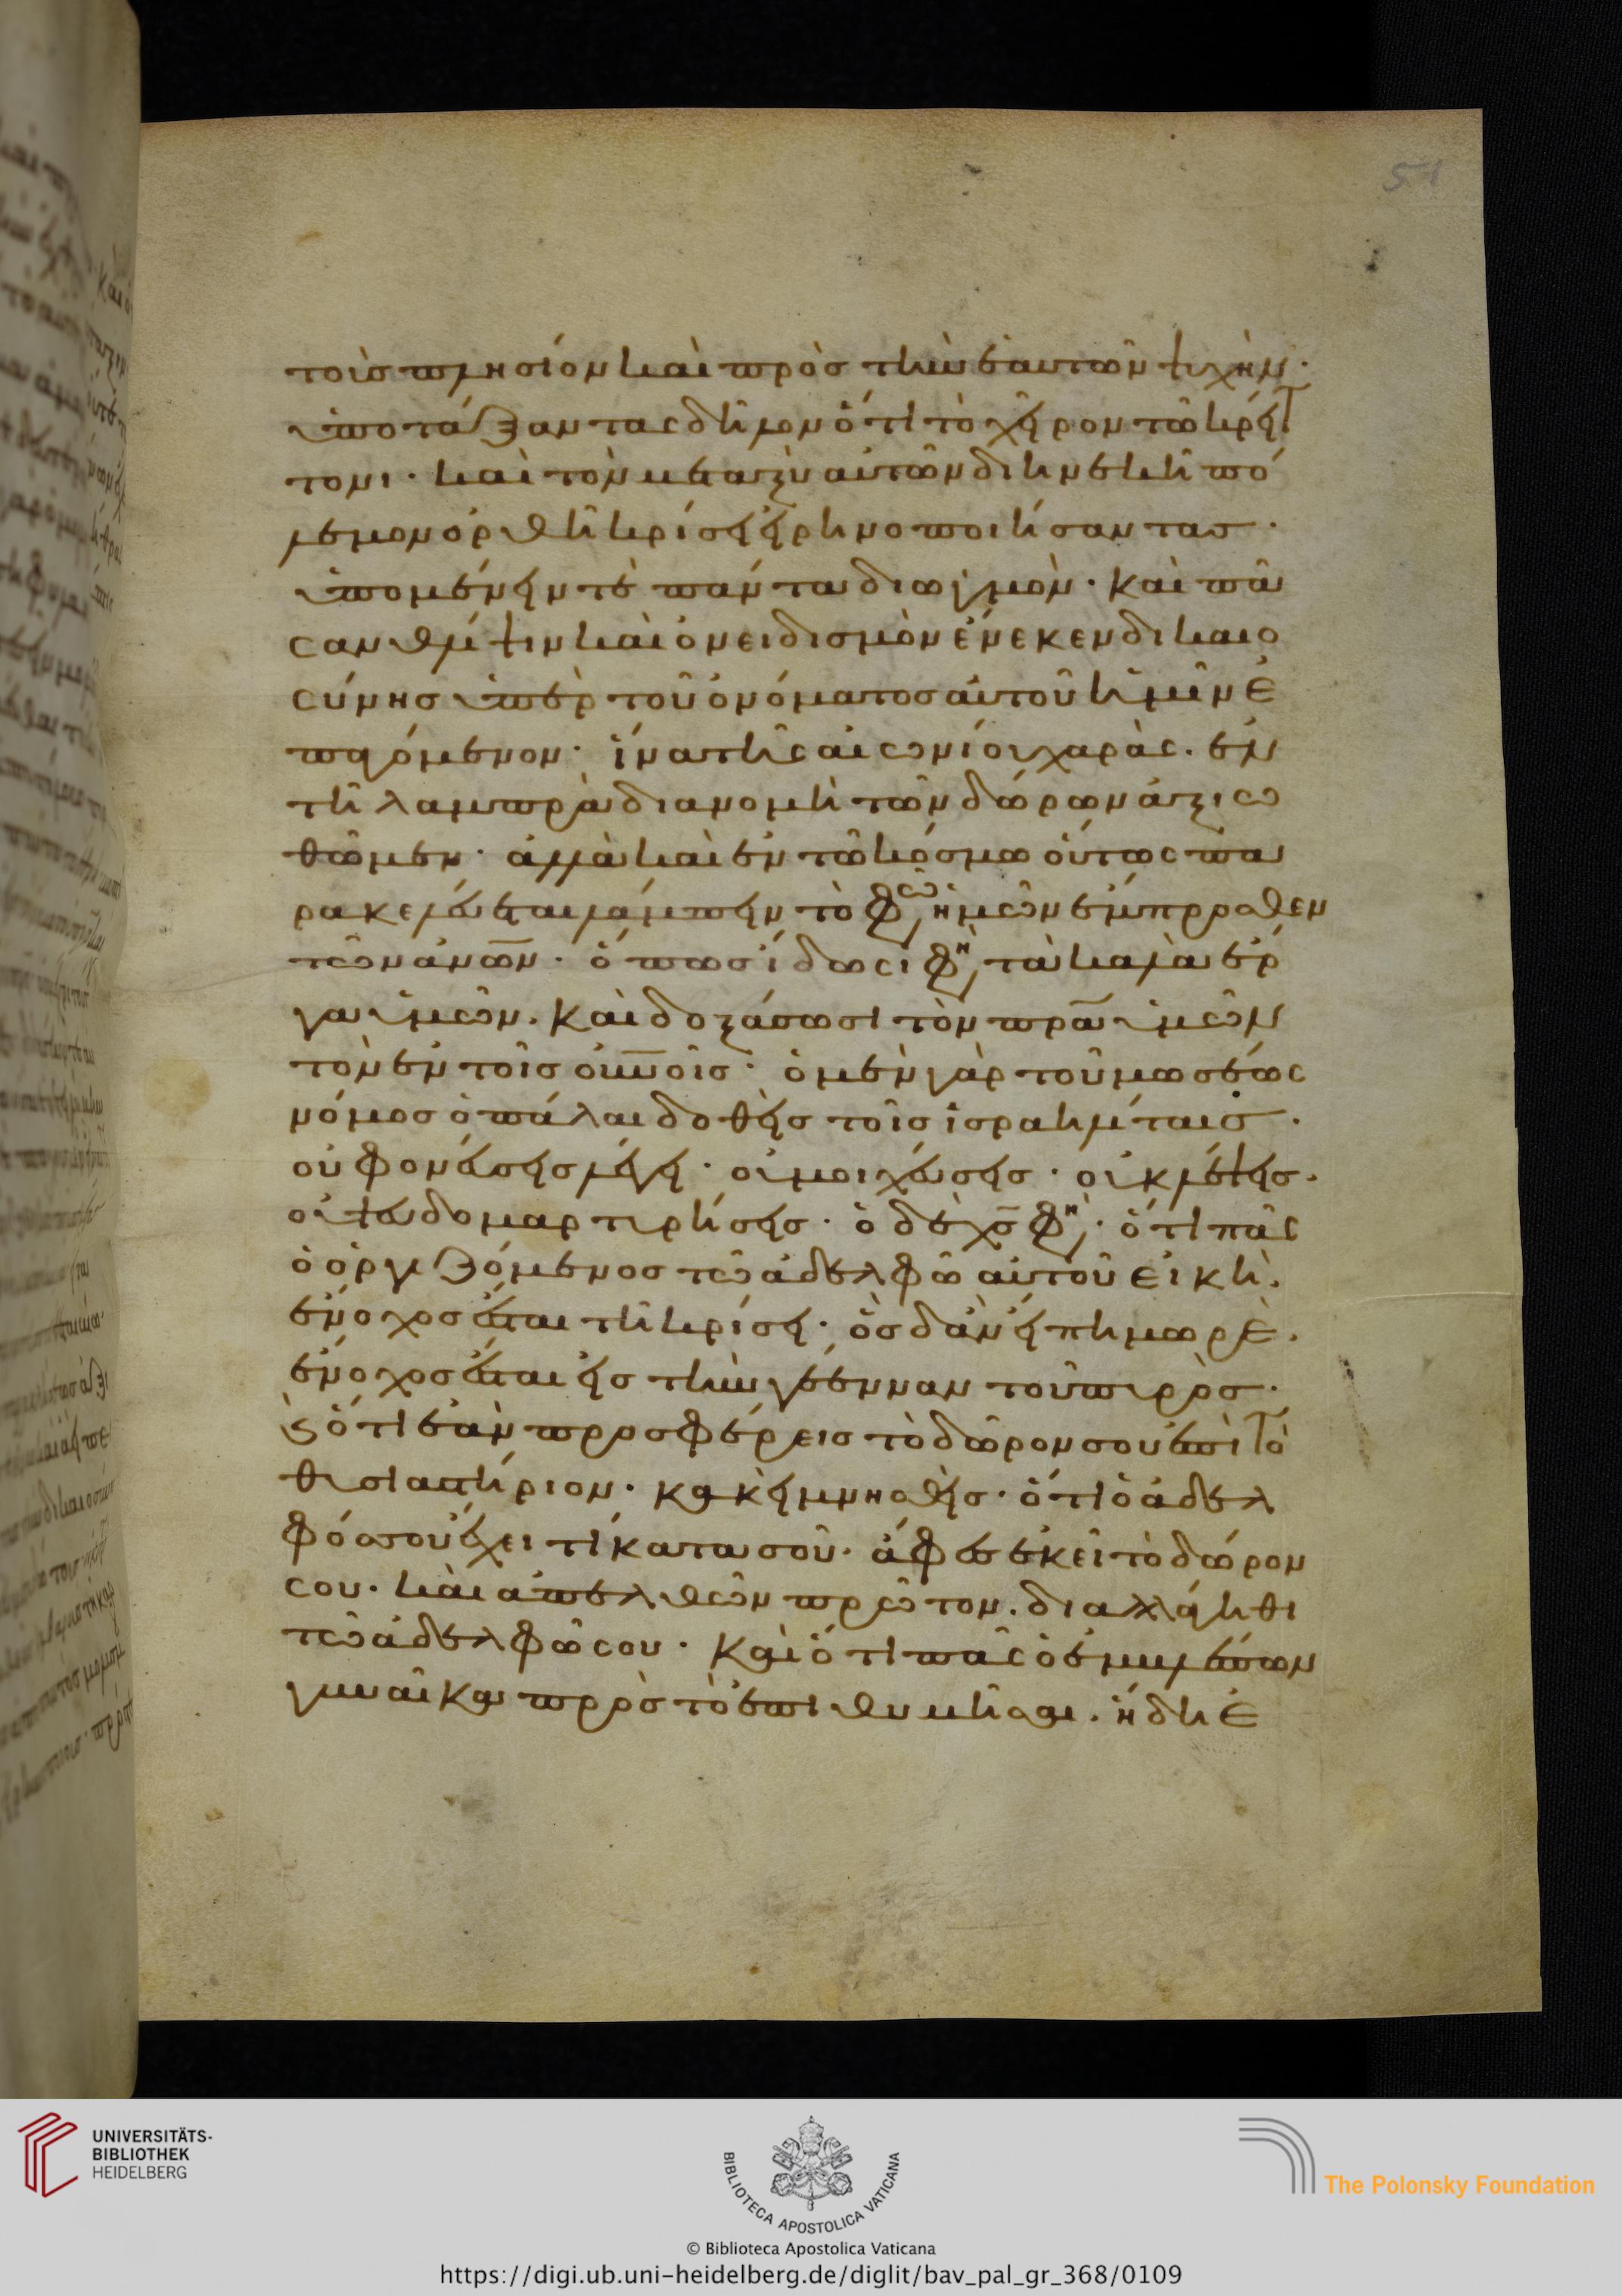 51
τοὺς πλησίον καὶ πρὸς τὴν ἑαυτῶν ψυχὴν·
ὑποτάξαντας δηλονότι τὸ χεῖρον τῶ κρείτ
τονι· καὶ τὸν μεταξὺ αὐτῶν διηνεκῆ πό
λεμον ὀρθῆ κρίσει εἰρηνοποιήσαντας·
ὑπομένειν τὲ πάντα διωγμὸν· καὶ πᾶ
σαν θλίψιν καὶ ὀνειδισμὸν ἕνεκεν δικαιο
σύνης ὑπὲρ τοῦ ὀνόματος αὐτοῦ ἡμῖν ἐ
παγόμενον· ἵνα τῆς αἰωνίου χαρὰς· ἐν
τῆ λαμπρᾶ διανομὴ τῶν δώρων ἀξιω
θῶμεν· ἀλλὰ καὶ ἐν τῶ κόσμω οὕτως πα
ρακελεύεται λάμπειν τὸ φῶ ἡμῶν ἔμπροσθεν
τῶν ἀνων· ὅπως ἴδωσι φη τὰ καλὰ ἔρ
γα ὑμῶν· καὶ δοξάσωσι τὸν πρα ὑμῶν
τὸν ἐν τοῖς οὐνοῖς· ὁ μὲν γὰρ τοῦ μωσέως
νόμος ὁ πάλαι δοθεὶς τοῖς ἰσραηλίταις·
οὐ φονεύσεις λέγει· οὐ μοιχεύσεις· οὐ κλέψεις·
οὐ ψευδομαρτυρήσεις· ὁ δὲ χς φη· ὅτι πᾶς
ὁ ὀργιζόμενος τῶ ἀδελφῶ αὐτοῦ εἰκῆ·
ἔνοχος ἔσται τῆ κρίσει· ὃς δἂν εἴπη μωρὲ·
ἔνοχος ἔσται εἰς τὴν γέενναν τοῦ πυρὸς·
ϗ ὅτι ἐὰν προσφέρεις τὸ δῶρον σου ἐπὶ τὸ
θυσιαστήριον· κακεῖ μνησθεὶς· ὅτι ὁ ἀδελ
φός σου ἔχει τί κατα σοῦ· ἄφες ἐκεῖ τὸ δώρον
σου· καὶ ἀπελθὼν πρῶτον· διαλλάγηθι
τῶ ἀδελφῶ σου· καὶ ὅτι πᾶς ὁ ἐμβλέπων
γυναῖκα πρὸς τὸ ἐπιθυμῆσαι· ἤδη ἐ
UNIVERSITÄTS-
BIBLIOTHEK
HEIDELBERG
BIBLIOTECA APOSTOLICA VATICANA
The Polonsky Foundation
© Biblioteca Apostolica Vaticana
https://digi.ub.uni-heidelberg.de/diglit/bav_pal_gr_368/0109